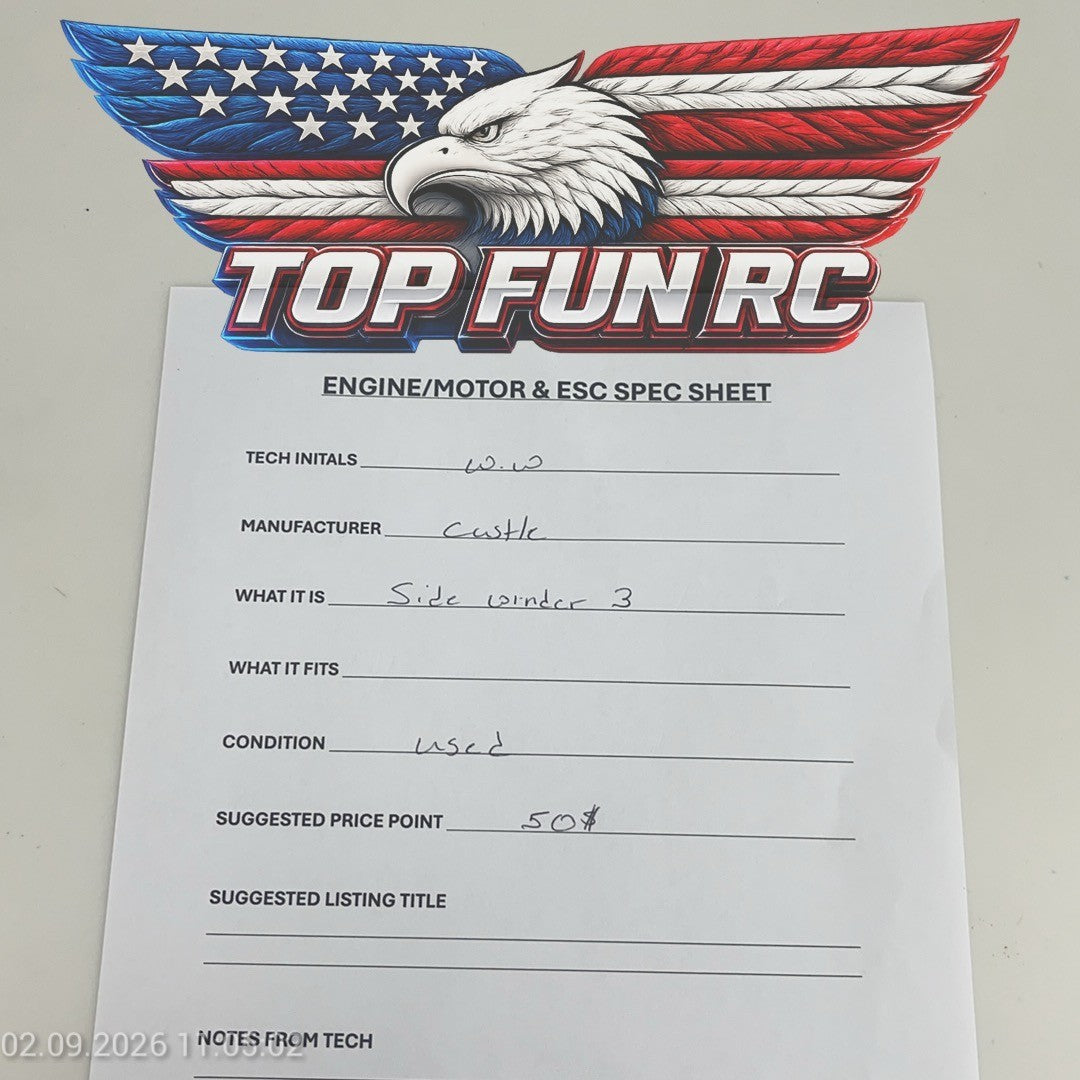 TOP FUN RC
ENGINE/MOTOR & ESC SPEC SHEET
TECH INITALS W.W
MANUFACTURER Castle
WHAT IT IS Side winder 3
WHAT IT FITS
CONDITION used
SUGGESTED PRICE POINT 50$
SUGGESTED LISTING TITLE
NOTES FROM TECH
02.09.2026 11:05:02